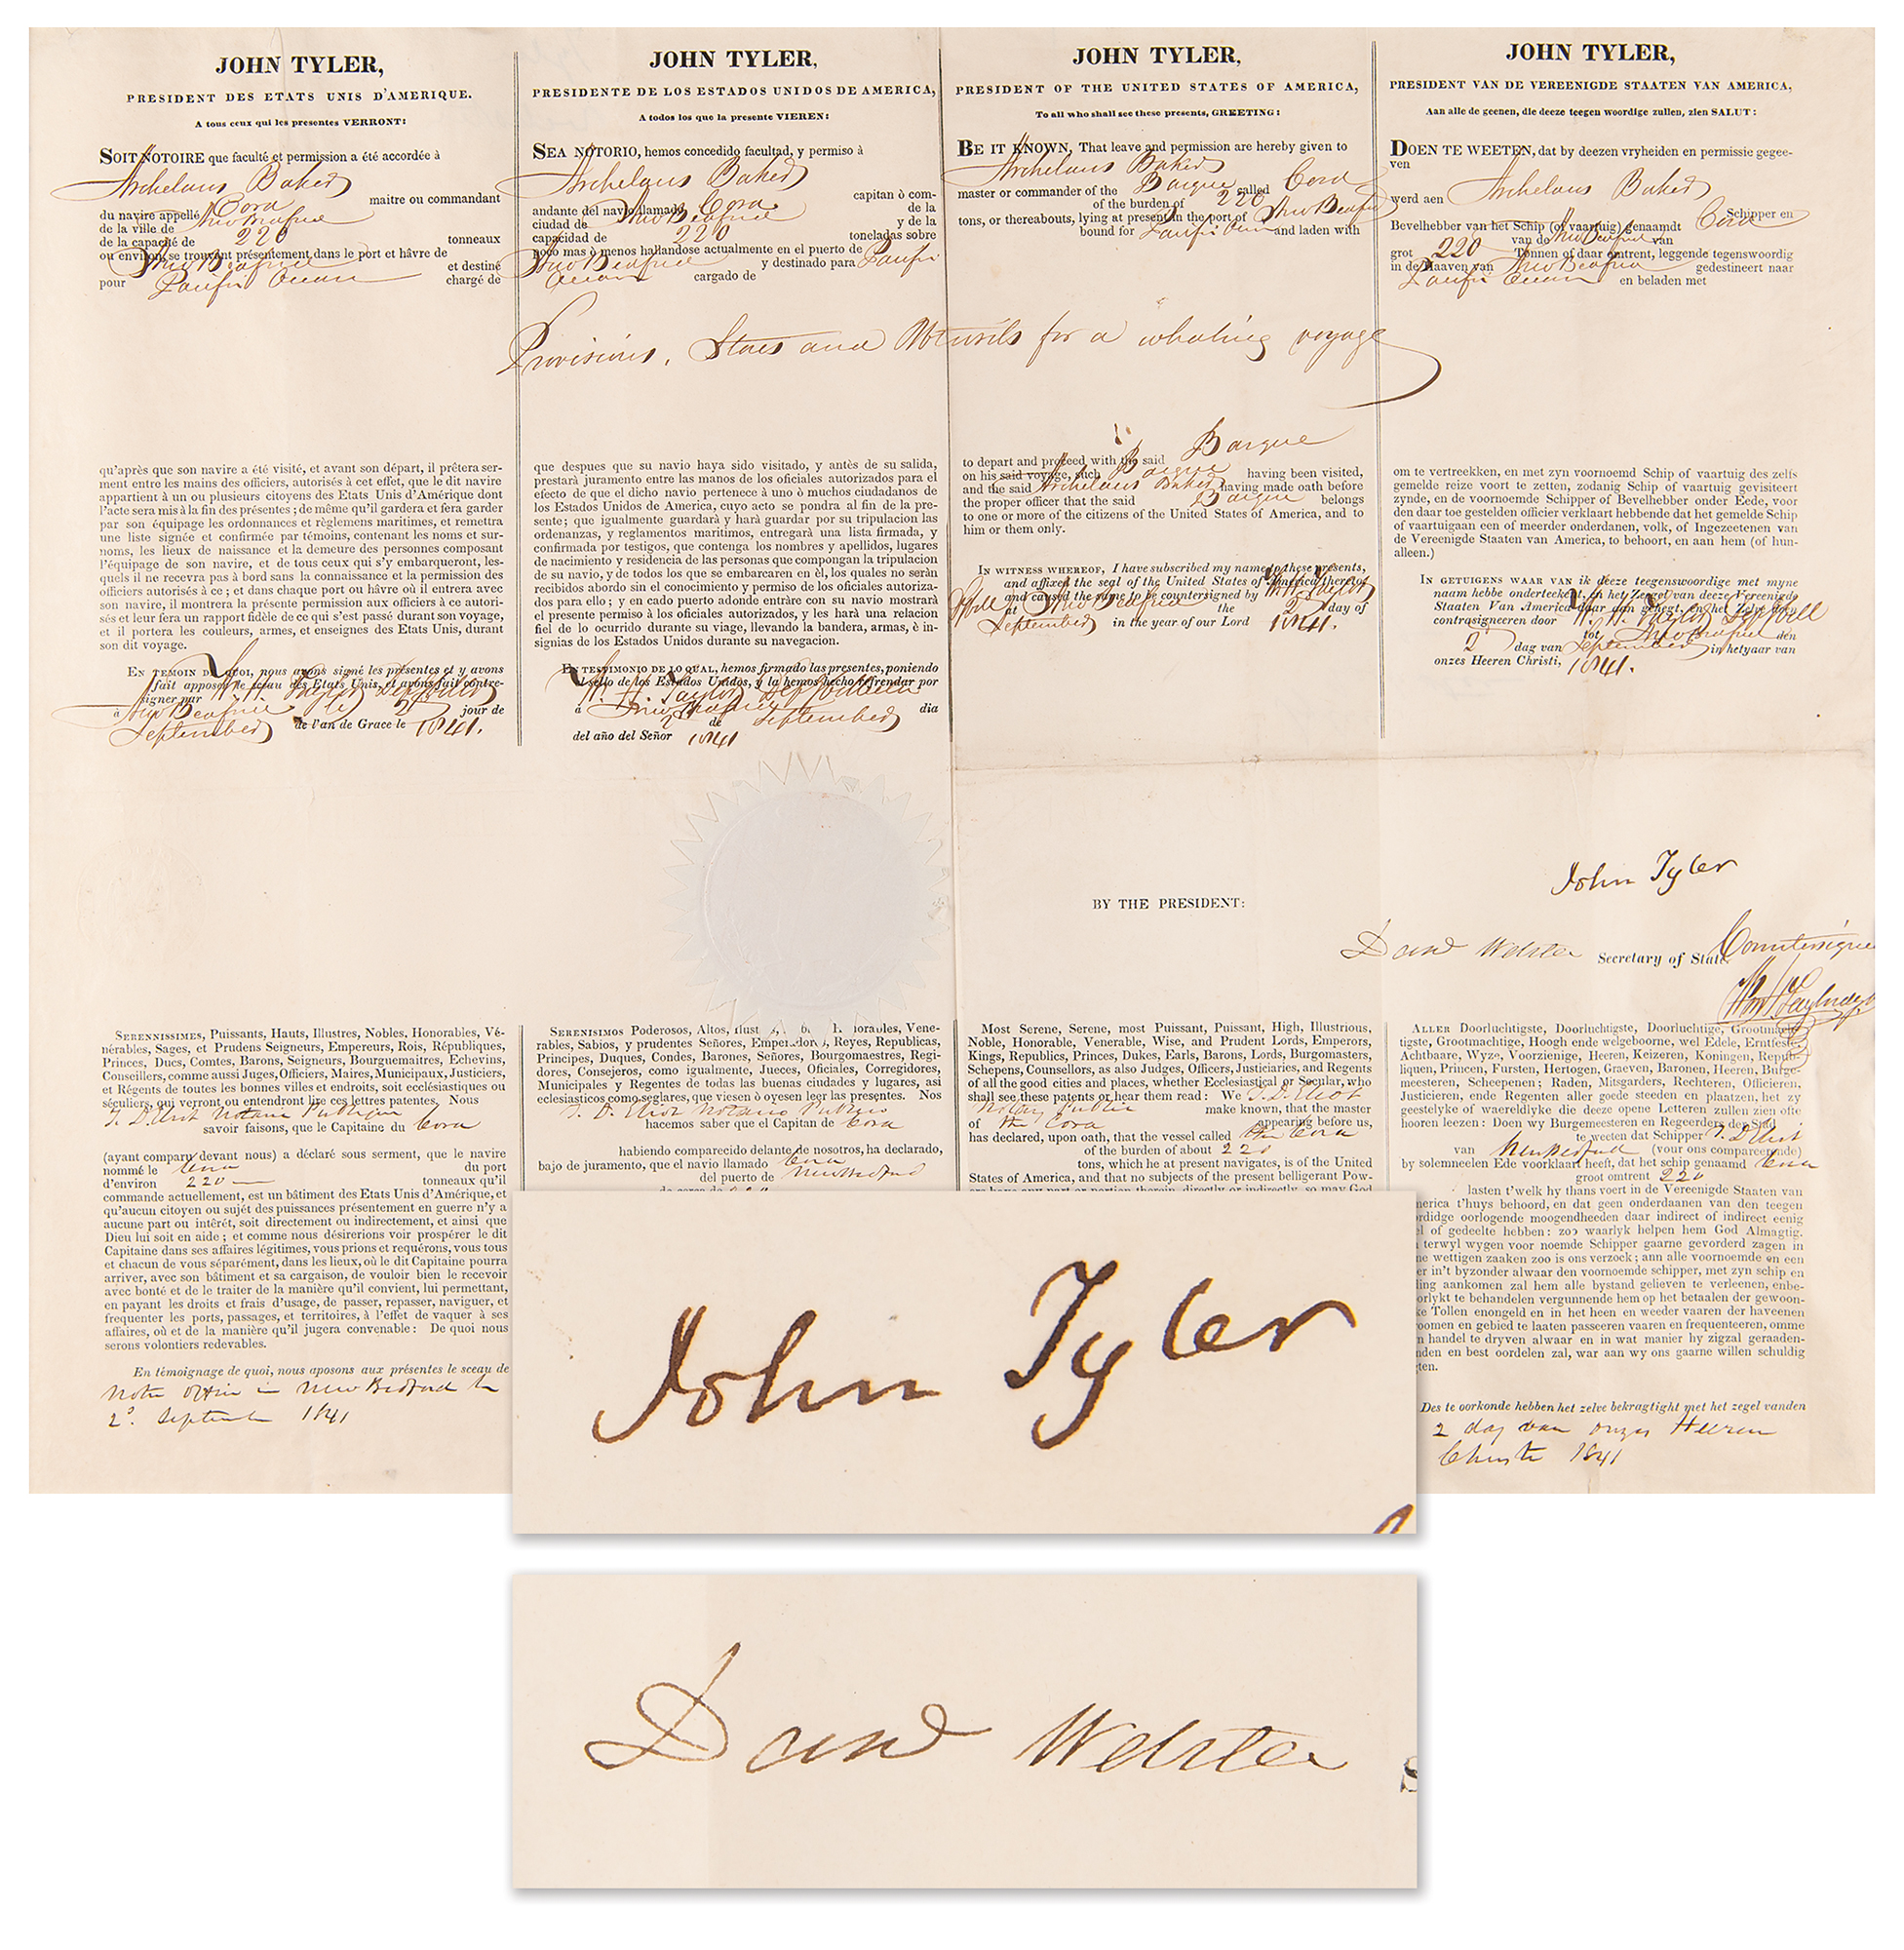 JOHN TYLER,
PRESIDENT DES ETATS UNIS D'AMERIQUE.
A tous ceux qui les presentes VERRONT:
SOIT NOTOIRE que faculté et permission a été accordée à
Archelaus Baker
maitre ou commandant
du navire appellé Cora
de la ville de New Bedford
de la capacité de 220 tonneaux
ou environ, se trouvant présentement dans le port et hâvre de
New Bedford et destiné
pour Pacific Ocean chargé de
JOHN TYLER,
PRESIDENTE DE LOS ESTADOS UNIDOS DE AMERICA,
A todos los que la presente VIEREN:
SEA NOTORIO, hemos concedido facultad, y permiso à
Archelaus Baker
capitan ò com-
andante del navio llamado Cora de la
ciudad de New Bedford y de la
capacidad de 220 toneladas sobre
poco mas ò menos hallandose actualmente en el puerto de
New Bedford y destinado para Pacific
Ocean cargado de
JOHN TYLER,
PRESIDENT OF THE UNITED STATES OF AMERICA,
To all who shall see these presents, GREETING:
BE IT KNOWN, That leave and permission are hereby given to
Archelaus Baker
master or commander of the Barque called Cora
of the burden of 220
tons, or thereabouts, lying at present in the port of New Bedford
bound for Pacific Ocean and laden with
JOHN TYLER,
PRESIDENT VAN DE VEREENIGDE STAATEN VAN AMERICA,
Aan alle de geenen, die deeze teegen woordige zullen, zien SALUT:
DOEN TE WEETEN, dat by deezen vryheiden en permissie gegee-
ven
werd aen Archelaus Baker
Schipper en
Bevelhebber van het Schip (of vaartuig) genaamdt Cora
van de New Bedford van
grot 220 Tonnen of daar omtrent, leggende tegenswoordig
in de Haaven van New Bedford gedestineert naar
Pacific Ocean en beladen met
Provisions, Stores and Utensils for a whaling voyage
qu'après que son navire a été visité, et avant son départ, il prêtera ser-
ment entre les mains des officiers, autorisés à cet effet, que le dit navire
appartient à un ou plusieurs citoyens des Etats Unis d'Amérique dont
l'acte sera mis à la fin des présentes; de même qu'il gardera et fera garder
par son équipage les ordonnances et règlemens maritimes, et remettra
une liste signée et confirmée par témoins, contenant les noms et sur-
noms, les lieux de naissance et la demeure des personnes composant
l'équipage de son navire, et de tous ceux qui s'y embarqueront, les-
quels il ne recevra pas à bord sans la connaissance et la permission des
officiers autorisés à ce; et dans chaque port ou hâvre où il entrera avec
son navire, il montrera la présente permission aux officiers à ce autori-
sés et leur fera un rapport fidèle de ce qui s'est passé durant son voyage,
et il portera les couleurs, armes, et enseignes des Etats Unis, durant
son dit voyage.
EN TEMOIN DE QUOI, nous avons signé les présentes et y avons
fait apposer le sceau des Etats Unis, et avons fait contre-
signer par W. H. Taylor Dep Coll
à New Bedford le 2 jour de
September de l'an de Grace le 1841.
que despues que su navio haya sido visitado, y antès de su salida,
prestarà juramento entre las manos de los oficiales autorizados para el
efecto de que el dicho navio pertenece à uno ò muchos ciudadanos de
los Estados Unidos de America, cuyo acto se pondra al fin de la pre-
sente; que igualmente guardarà y harà guardar por su tripulacion las
ordenanzas, y reglamentos maritimos, entregarà una lista firmada, y
confirmada por testigos, que contenga los nombres y apellidos, lugares
de nacimiento y residencia de las personas que compongan la tripulacion
de su navio, y de todos los que se embarcaren en èl, los quales no seràn
recibidos abordo sin el conocimiento y permiso de los oficiales autoriza-
dos para ello; y en cado puerto adonde entràre con su navio mostrarà
el presente permiso à los oficiales autorizados, y les harà una relacion
fiel de lo ocurrido durante su viage, llevando la bandera, armas, è in-
signias de los Estados Unidos durante su navegacion.
EN TESTIMONIO DE LO QUAL, hemos firmado las presentes, poniendo
el sello de los Estados Unidos, y la hemos hecho refrendar por
W. H. Taylor Dep
à New Bedford dia
2 de September
del año del Señor 1841
to depart and proceed with the said Barque
on his said voyage, such Barque having been visited,
and the said Archelaus Baker having made oath before
the proper officer that the said Barque belongs
to one or more of the citizens of the United States of America, and to
him or them only.
IN WITNESS WHEREOF, I have subscribed my name to these presents,
and affixed the seal of the United States of America thereto
and caused the same to be countersigned by W. H. Taylor
at New Bedford the 2 day of
September in the year of our Lord 1841.
om te vertreekken, en met zyn voornoemd Schip of vaartuig des zelfs
gemelde reize voort te zetten, zodanig Schip of vaartuig gevisiteert
zynde, en de voornoemde Schipper of Bevelhebber onder Eede, voor
den daar toe gestelden officier verklaart hebbende dat het gemelde Schip
of vaartuigaan een of meerder onderdanen, volk, of Ingezeetenen van
de Vereenigde Staaten van America, to behoort, en aan hem (of hun-
alleen.)
IN GETUIGENS WAAR VAN ik deeze teegenswoordige met myne
naam hebbe onderteekent, en het Zegel van deeze Vereenigde
Staaten Van America daar aan gehegt, en het Zelve doen
contrasigneeren door W. H. Taylor Dep Coll
tot New Bedford den
2 dag van September in hetyaar van
onzes Heeren Christi, 1841.
John Tyler
BY THE PRESIDENT:
Danl Webster Secretary of State.
Countersigned
SERENNISSIMES, Puissants, Hauts, Illustres, Nobles, Honorables, Vé-
nérables, Sages, et Prudens Seigneurs, Empereurs, Rois, Républiques,
Princes, Ducs, Comtes, Barons, Seigneurs, Bourguemaitres, Echevins,
Conseillers, comme aussi Juges, Officiers, Maires, Municipaux, Justiciers,
et Régents de toutes les bonnes villes et endroits, soit ecclésiastiques ou
séculiers, qui verront ou entendront lire ces lettres patentes, Nous
T. D. Eliot Notaire Publique
savoir faisons, que le Capitaine du Cora
(ayant comparu devant nous) a déclaré sous serment, que le navire
nommé le Cora du port
d'environ 220 tonneaux qu'il
commande actuellement, est un bâtiment des Etats Unis d'Amérique, et
qu'aucun citoyen ou sujét des puissances présentement en guerre n'y a
aucune part ou intérêt, soit directement ou indirectement, et ainsi que
Dieu lui soit en aide; et comme nous désirerions voir prospérer le dit
Capitaine dans ses affaires légitimes, vous prions et requérons, vous tous
et chacun de vous séparément, dans les lieux, où le dit Capitaine pourra
arriver, avec son bâtiment et sa cargaison, de vouloir bien le recevoir
avec bonté et de le traiter de la manière qu'il convient, lui permettant,
en payant les droits et frais d'usage, de passer, repasser, naviguer, et
frequenter les ports, passages, et territoires, à l'effet de vaquer à ses
affaires, où et de la manière qu'il jugera convenable: De quoi nous
serons volontiers redevables.
En témoignage de quoi, nous aposons aux présentes le sceau de
New Bedford le
2 September 1841
SERENISIMOS Poderosos, Altos, Vene-
rables, Sabios, y prudentes Señores, Reyes, Republicas,
Principes, Duques, Condes, Barones, Señores, Bourgomaestres, Regi-
dores, Consejeros, como igualmente, Jueces, Oficiales, Corregidores,
Municipales y Regentes de todas las buenas ciudades y lugares, asi
eclesiasticos como seglares, que viesen ò oyesen leer las presentes. Nos
T. D. Eliot Notario Publico
hacemos saber que el Capitan de Cora
habiendo comparecido delante de nosotros, ha declarado,
bajo de juramento, que el navio llamado Cora
del puerto de New Bedford
de cerca de 220
Most Serene, Serene, most Puissant, Puissant, High, Illustrious,
Noble, Honorable, Venerable, Wise, and Prudent Lords, Emperors,
Kings, Republics, Princes, Dukes, Earls, Barons, Lords, Burgomasters,
Schepens, Counsellors, as also Judges, Officers, Justiciaries, and Regents
of all the good cities and places, whether Ecclesiastical or Secular, who
shall see these patents or hear them read: We T. D. Eliot
Notary Public make known, that the master
of the Cora appearing before us,
has declared, upon oath, that the vessel called the Cora
of the burden of about 220
tons, which he at present navigates, is of the United
States of America, and that no subjects of the present belligerant Pow-
ers have any part or portion therein, directly or indirectly, so may God
ALLER Doorluchtigste, Doorluchtigste, Doorluchtige, Grootmach-
tigste, Grootmachtige, Hoogh ende welgeboorne, wel Edele, Erntfeste,
Achtbaare, Wyze, Voorzienige, Heeren, Keizeren, Koningen, Repub-
liquen, Princen, Fursten, Hertogen, Graeven, Baronen, Heeren, Burge-
meesteren, Scheepenen; Raden, Mitsgarders, Rechteren, Officieren,
Justicieren, ende Regenten aller goede steeden en plaatzen, het zy
geestelyke of waereldlyke die deeze opene Letteren zullen zien ofte
hooren leezen: Doen wy Burgemeesteren en Regeerders der Stad
te weeten dat Schipper T. D. Eliot
van New Bedford (vour ons compareerende)
by solemneelen Ede voorklaart heeft, dat het schip genaamd Cora
groot omtrent 220
lasten t'welk hy thans voert in de Vereenigde Staaten van
merica t'huys behoord, en dat geen onderdaanen van den teegen
ordidge oorlogende moogendheeden daar indirect of indirect eenig
el of gedeelte hebben: zoo waarlyk helpen hem God Almagtig.
terwyl wygen voor noemde Schipper gaarne gevorderd zagen in
ne wettigen zaaken zoo is ons verzock; ann alle voornoemde en een
er in't byzonder alwaar den voornoemde schipper, met zyn schip en
ding aankomen zal hem alle bystand gelieven te verleenen, enbe-
orlykt te behandelen vergunnende hem op het betaalen der gewoon-
ke Tollen enongeld en in het heen en weeder vaaren der haveenen
oomen en gebied te laaten passeeren vaaren en frequenteeren, omme
n handel te dryven alwaar en in wat manier hy zigzal geraaden-
nden en best oordelen zal, war aan wy ons gaarne willen schuldig
ten.
Des te oorkonde hebben het zelve bekragtight met het zegel vanden
2 dag van onzes Heeren
Christi 1841
John Tyler
Danl Webster
S